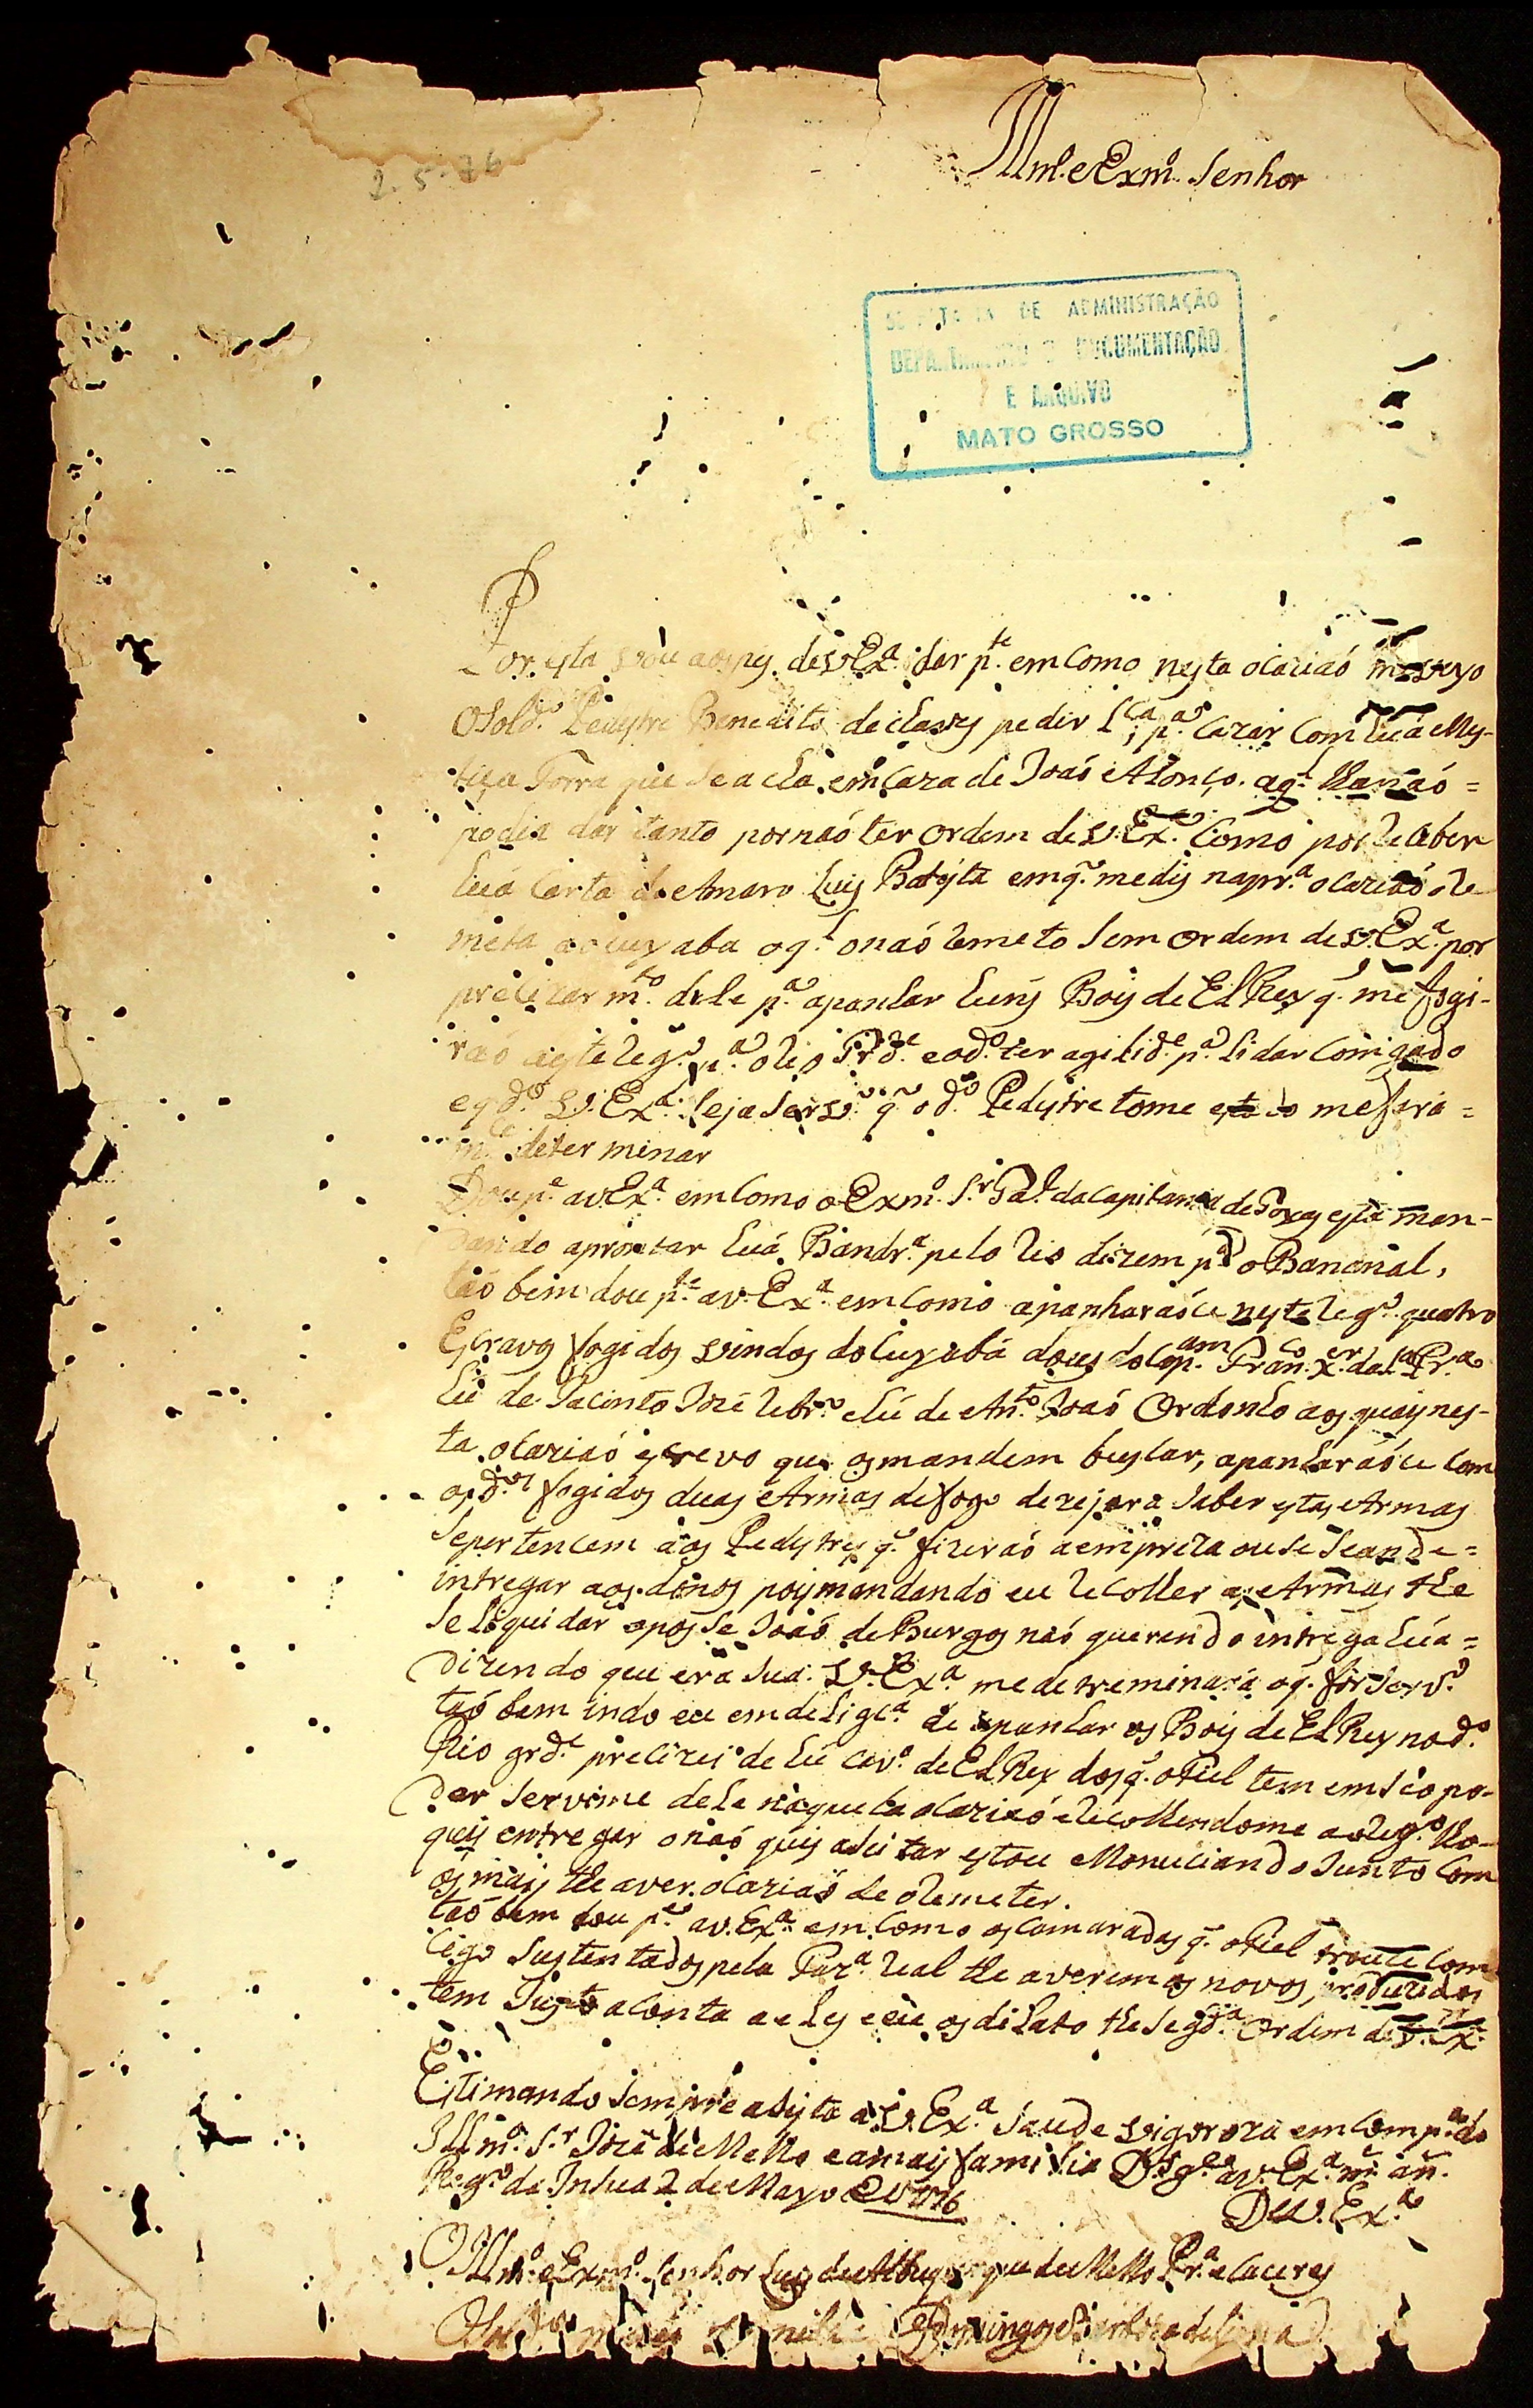 2-5-76
Illm.º e Exm.º Senhor
DE ADMINISTRAÇÃO
DOCUMENTAÇÃO
E ARQUIVO
MATO GROSSO
Por esta vou aos pes de V. Ex.ª dar p.te em como nesta ocaziaó
O Sold.º Pedystre Benedito de clasvy pedir l.ça p.ª cazar com huá Mys-
tiça Forra que se acha em caza de Joaó Afonço. aq.l lha naó =
podia dar tanto por naó ter ordem de V. Ex.ª como por receber
huá Carta de Amaro Luis Batista em q. me dis na pr.ª ocaziaó o re
meta ao cuyaba o q.l o naó remeto sem ordem de V. Ex.ª por
precizar m.to dele p.ª apanhar huns Bois de El Rey q. me fogi-
raó deste reg.º p.ª o rio Grd.e e o d.º ter agilid.e p.ª lidar com gado
e q.do V. Ex.ª seja serv.º q. o d.º Pedystre torne me fará =
m.ce determinar
Dou p.e a V. Ex.ª em como o Exm.º S.r Ga.l da Capitania de Goyas esta man-
dando aprontar huá Bandr.ª pelo rio dizem p.ª o Bananal,
taó bem dou p.te a V. Ex.ª em como apanharaóce neste reg.º quatro
Escravos fogidos vindos do Cuyabá dous do Cap.am Fran.co X.er da S.ª Pr.ª
hú de Jacinto Jozé Rebr.º e hú de An.to Joaó Ordonho aos quais nes-
ta ocaziaó escrevo que os mandem buscar, apanharaóce com
os d.os fogidos duas Armas de fogo dezejara saber estas Armas
se pertencem aos Pedystres q. fizeraó a empreza ou se se ande =
intregar aos donos pois mandando eu recolher as Armas the
se liquidar a posse Joaó de Burgos naó querendo intrega huá =
Dizendo que era sua. V. Ex.ª me detreminará o q. for serv.º
taó bem indo eu em delig.ca de apanhar os Bois de El Rey no d.º
Rio grd.e precizei de hú cav.º de El Rey dos q. o Fiel tem em seo po-
der servime dele naquela ocaziaó e recolhendome ao reg.º lho -
quis entregar o naó quis aseitar estou Monuciando Junto com
os mais the aver ocaziaó de o remeter.
taó bem dou p.te a V. Ex.ª em como os camaradas q. o Fiel trouce com
cigo sustentados pela Faz.ª Real the averem os novos produzidos
tem Justo a conta a e eu os dilato the seg.da Ordem de V. Ex.ª
Estimando sempre asista a V. Ex.ª saude vigoroza em comp.ª do
Illm.º S.r Jozé de Mello e a mais familia D.s g.e a V. Ex.ª m. an.
Reg.º da Insua 2 de Mayo de 1776
De V. Ex.ª
Illm.º e Exm.º Senhor Luis de Albuquerque de Mello Pr.ª e Caceres